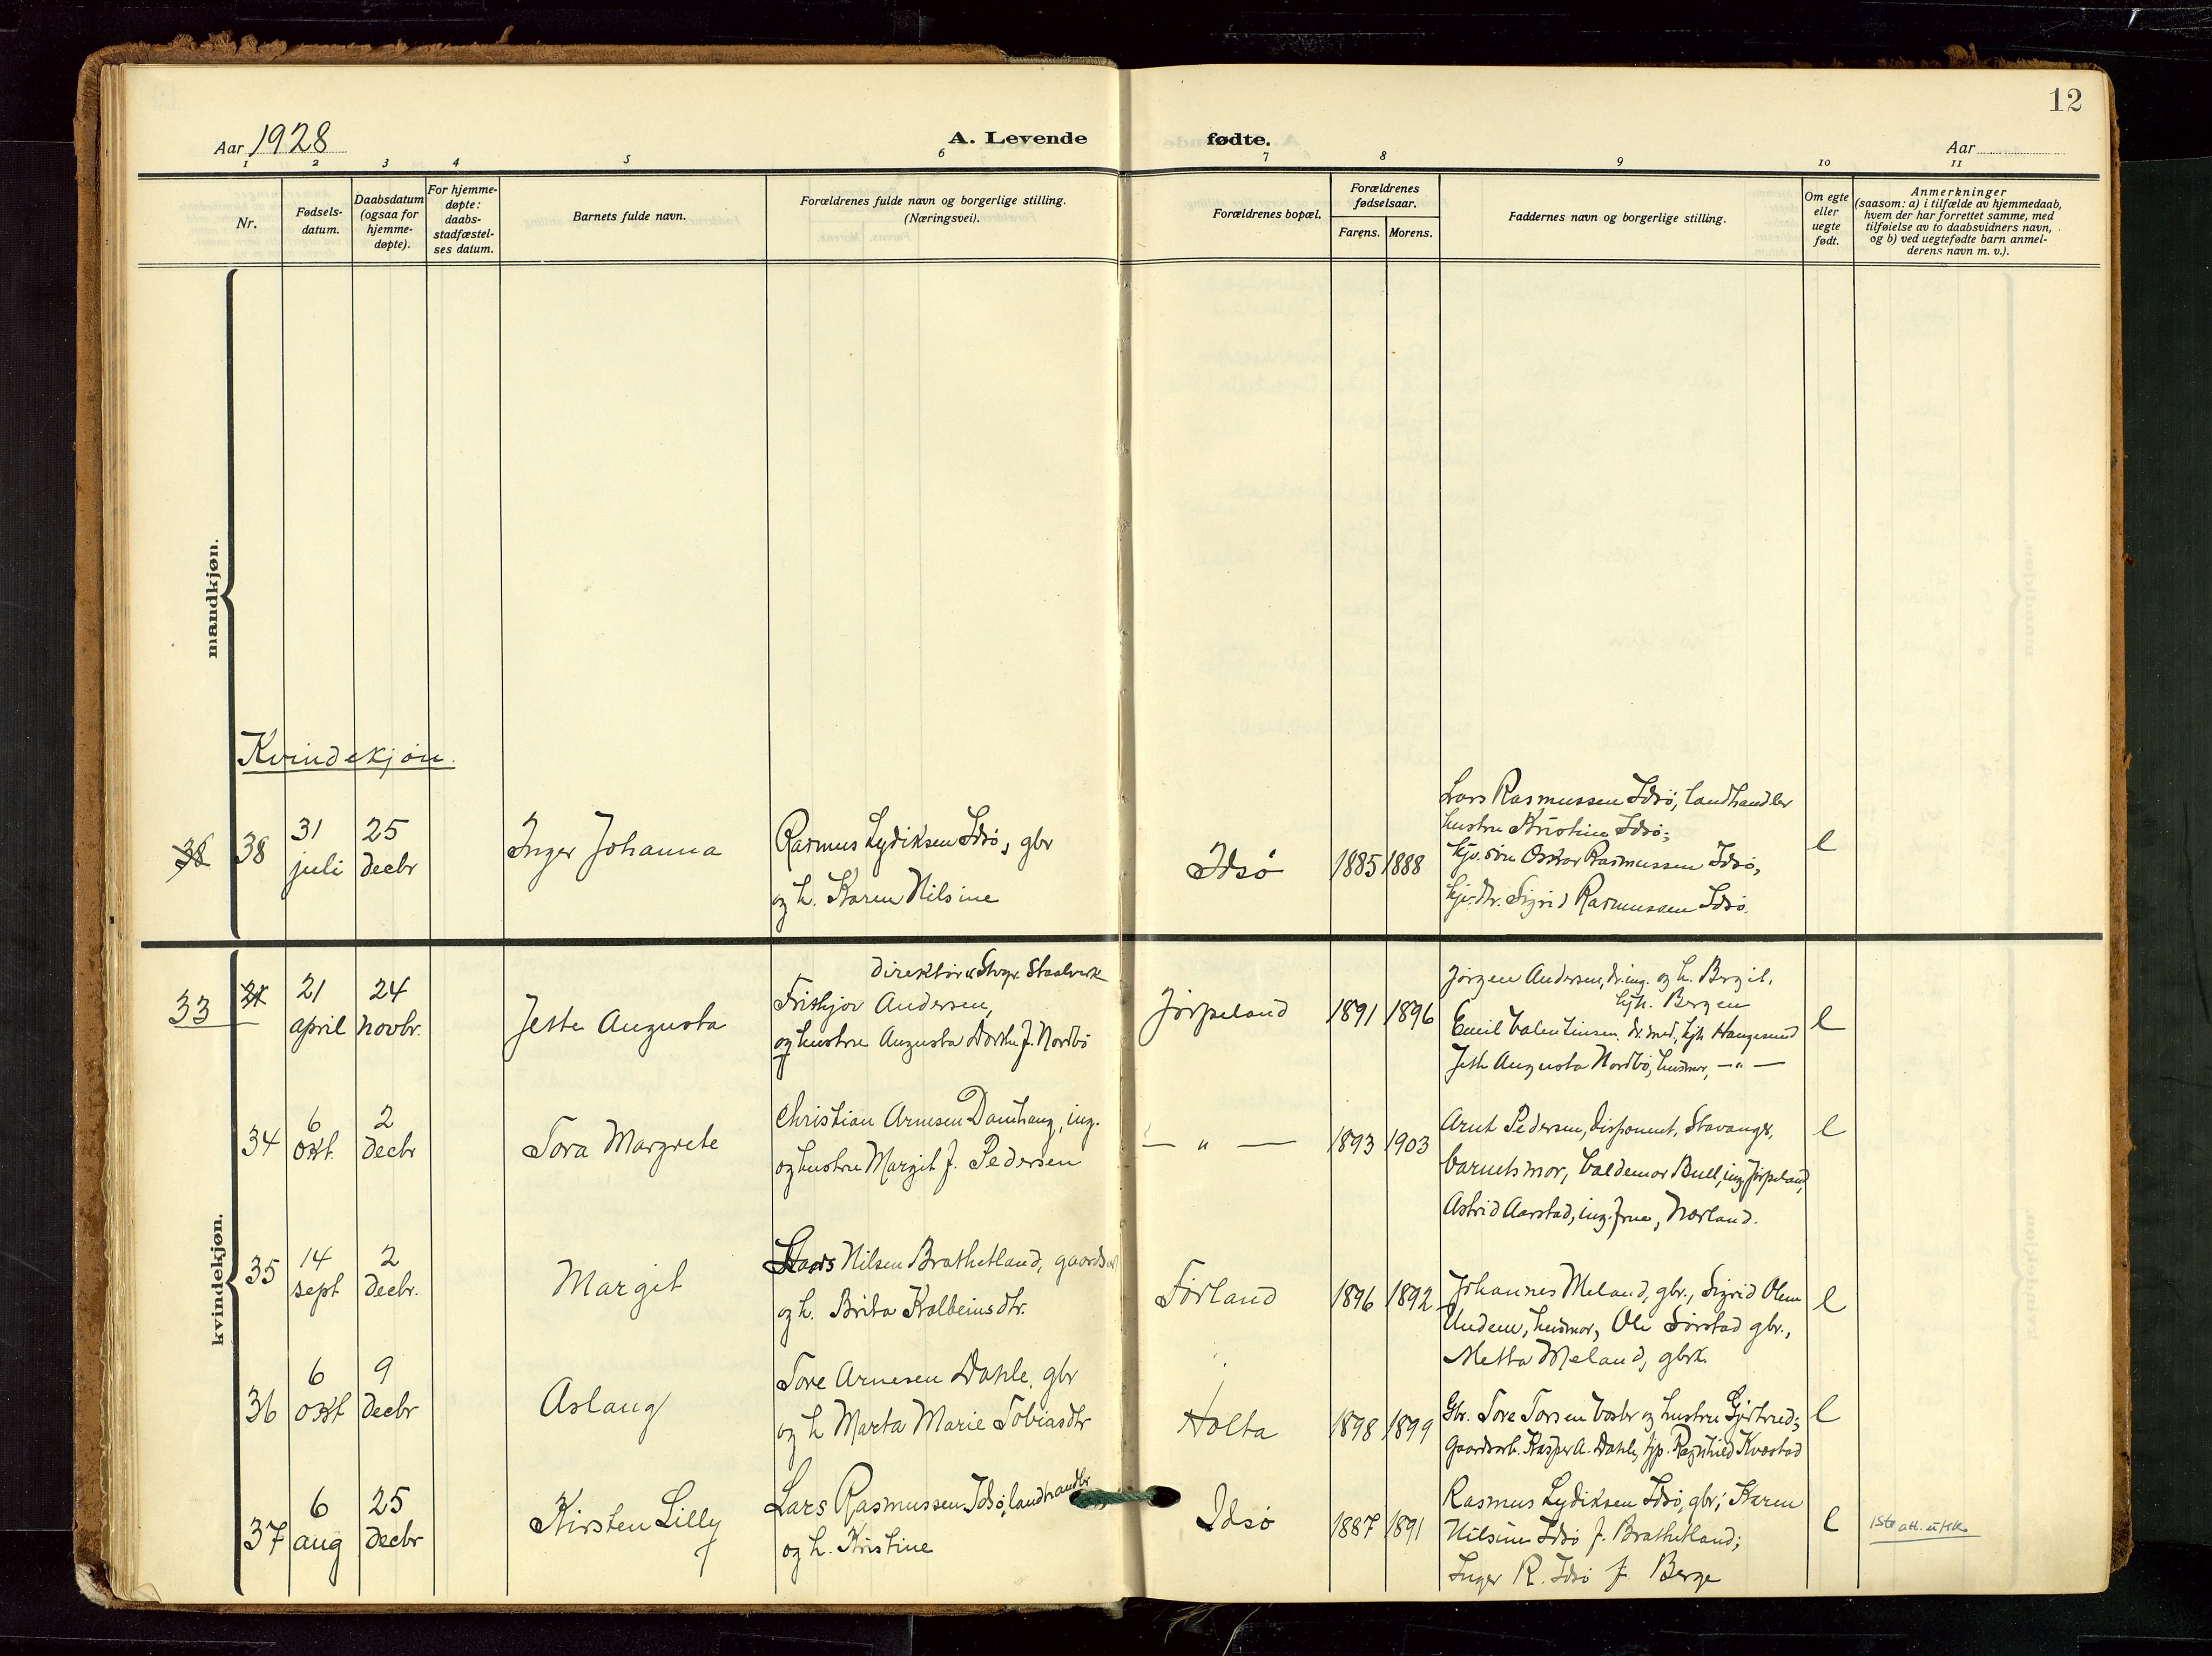 12
Aar 1928
A. Levende
fødte.
Aar
1 2 3 4 5 6 7 8 9 10 11
Nr.
Fødsels-
datum.
Daabsdatum
(ogsaa for
hjemme-
døpte).
For hjemme-
døpte:
daabs-
stadfæstel-
ses datum.
Barnets fulde navn.
Forældrenes fulde navn og borgerlige stilling.
(Næringsvei).
Forældrenes bopæl.
Forældrenes
fødselsaar.
Farens. Morens.
Faddernes navn og borgerlige stilling.
Om egte
eller
uegte
født.
Anmerkninger
(saasom: a) i tilfælde av hjemmedaab,
hvem der har forrettet samme, med
tilføielse av to daabsvidners navn,
og b) ved uegtefødte barn anmel-
derens navn m. v.).
mandkjøn.
Kvindekjøn.
38 38
31
juli
25
decbr
Inger Johanna
Rasmus Lydiksen Idsø, gbr
og h. Karen Nilsine
Idsø
1885 1888
Lars Rasmussen Idsø, landhandler
hustru Kristine Idsø;
hjv. søn Oskar Rasmussen Idsø,
hjv. dtr. Sigrid Rasmussen Idsø.
e
kvindekjøn.
33
21
april
24
novbr.
Jette Augusta
direktør v. Stvgr. Staalverk
Frithjov Andersen,
og hustru Augusta Dorthe f. Nordbø
Jørpeland
1891 1896
Jørgen Andersen, dr. ing. og h. Bergit,
hjh. Bergen
Emil Valentinsen, dr. med., hjh. Haugesund
Jette Augusta Nordbø, husmor, — " —
e
34
6
okt.
2
decbr
Tora Margrete
Christian Arnesen Damhaug, ing.
og hustru Margit f. Pedersen
— " —
1893 1903
Arnt Pedersen, disponent, Stavanger,
barnets mor, Valdemar Bull, ing. Jørpeland,
Astrid Aarstad, ing. frue, Nærland.
e
35
14
sept
2
decbr.
Margit
Lars Nilsen Brathetland, gaards
og h. Brita Kolbeinsdtr.
Førland
1896 1892
Johannes Meland, gbr., Sigrid Olene
husmor, Ole Sørstad gbr.,
Metta Meland, gbrk.
e
36
6
okt
9
decbr
Aslaug
Tore Arnesen Dahle, gbr
og h Marta Marie Tobiasdtr
Holta
1898 1899
Gbr. Tore Torsen og hustru Gjertrud;
Gaardsarb. Kasper A. Dahle, tjp. Ragnhild Kvæstad
e
37
6
aug
25
decbr
Kirsten Lilly
Lars Rasmussen Idsø, landhandlr
og h. Kristine
Idsø
1887 1891
Rasmus Lydiksen Idsø, gbr; Karen
Nilsine Idsø f. Brathetland;
Inger R. Idsø f. Berge
e